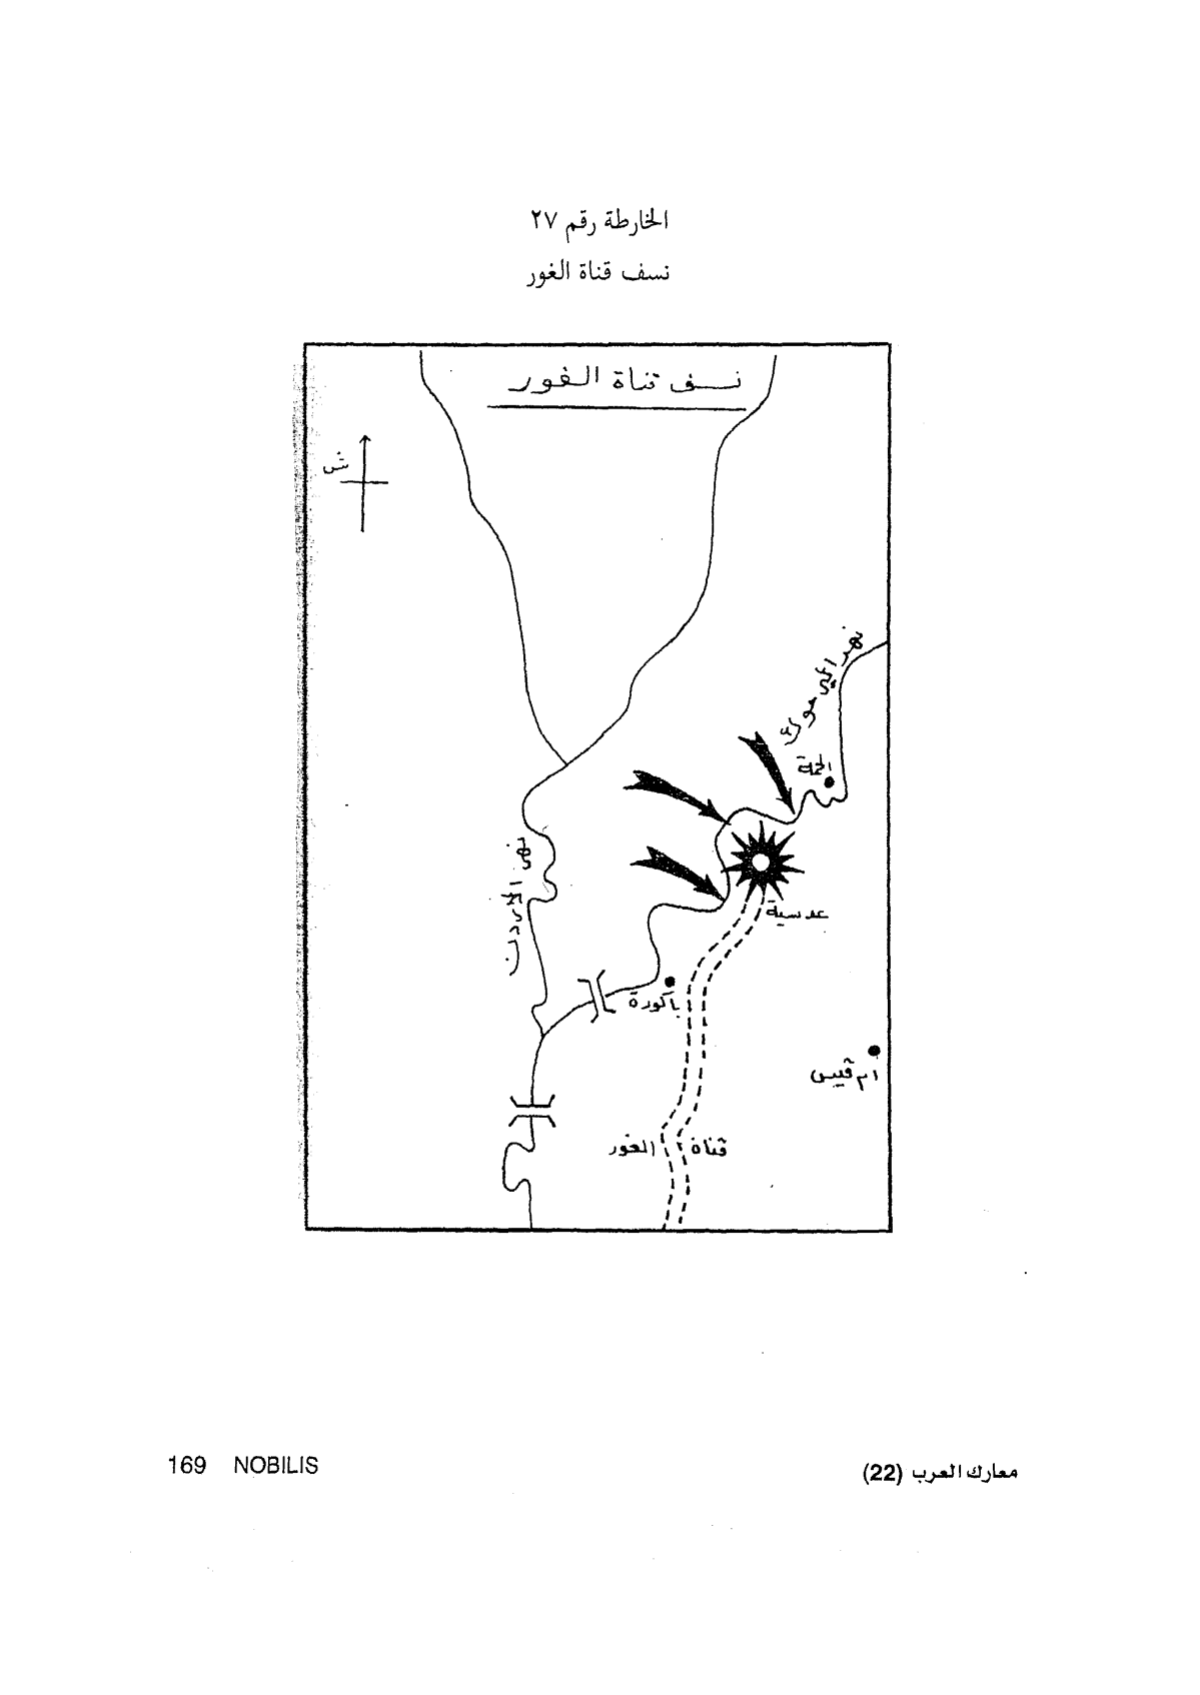 الخارطة رقم ٢٧
نسف قناة الغور
نسف قناة الغور
ش
نهر اليرموك
الحمة
نهر الاردن
عدسية
باكورة
ام قيس
قناة الغور
169 NOBILIS
معارك العرب (22)